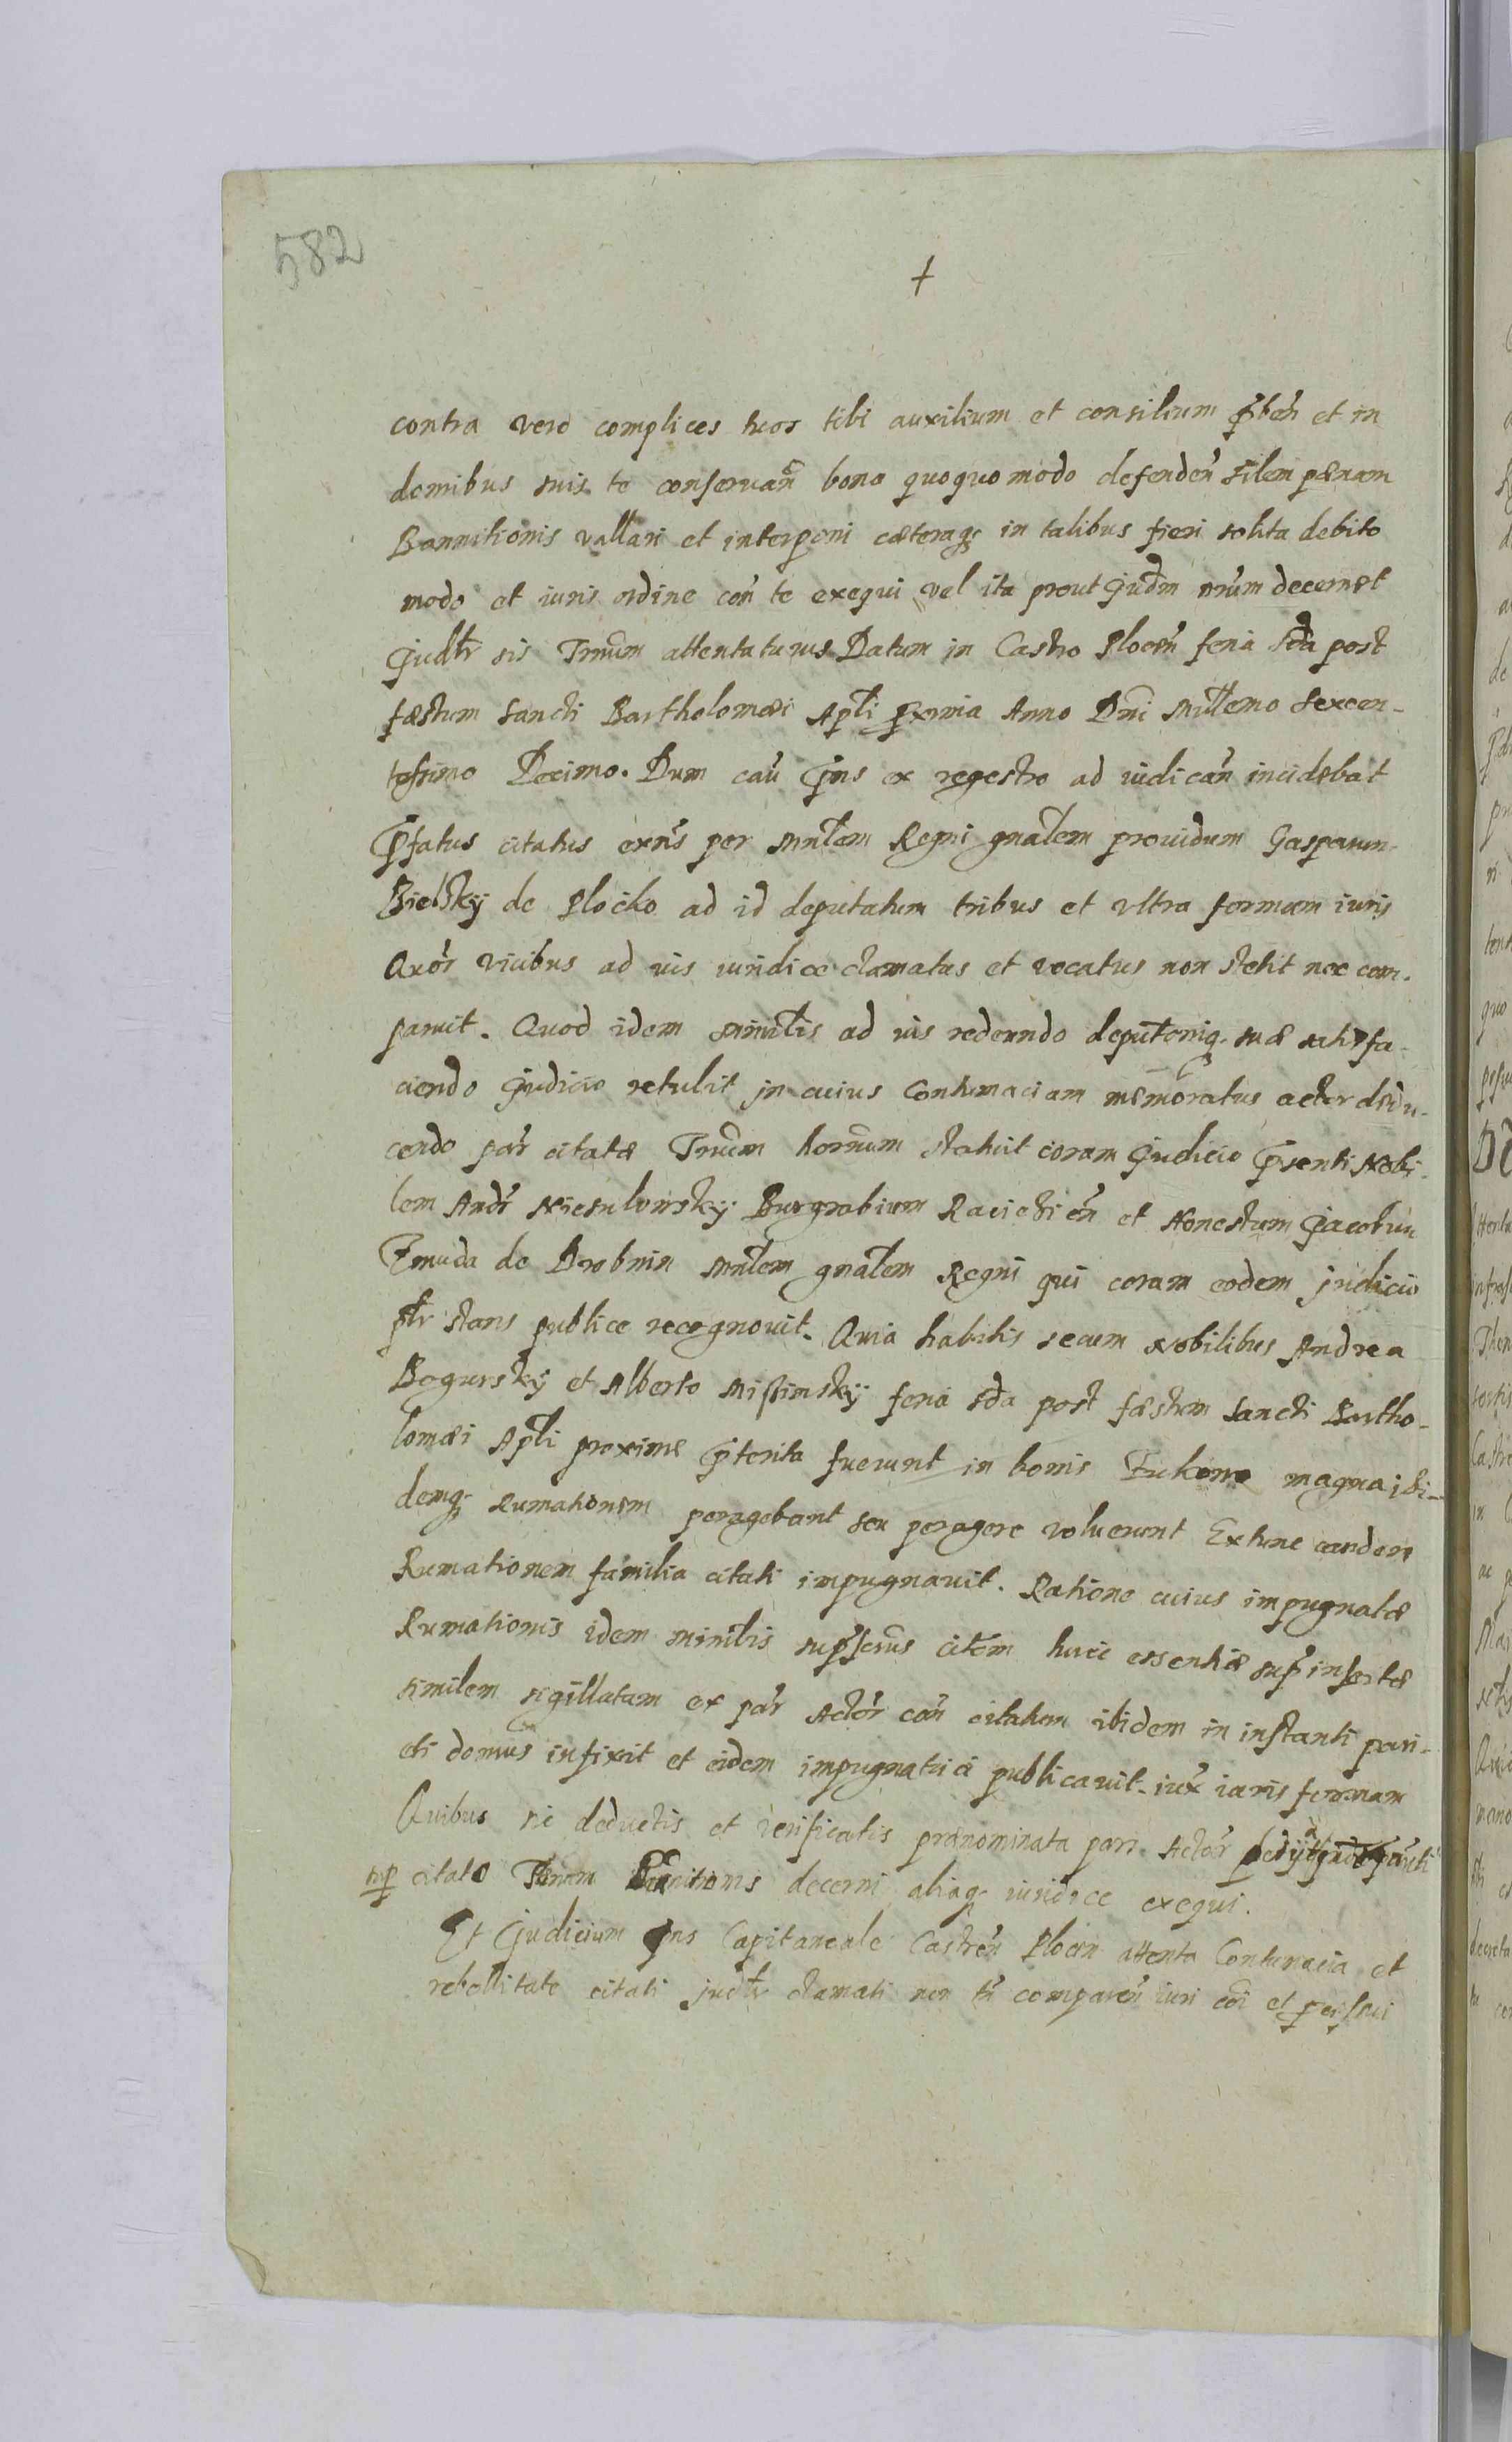 582
+
contra vero complices tuos tibi auxilium et consilium p̃beñ et in
domibus suis te conseruañ bona quoquomodo defendeñ silem pænam
Bannitionis vallari et interponi cæteraq; in talibus fieri solita debito
modo et iuris ordine coñ te exequi vel ita prout Judm̃ nr̃um decernet
Judl̃r sis Trm̃um attentaturus Datum in Castro Plocen̄ feria sc̃da post
fæstum Sancti Bartholomæi Apl̃i proxima Anno Dñi Mill̃emo Sexcen-
tesimo Decimo. Dum cau͂ p̃ns ex regestro ad iudicañ incidebat
p̃fatus citatus ex̃ns per Minl̃em Regni gnãlem prouidum Gasparum
Bielsky de Plocko ad id deputatum tribus et vltra formam iuris
Quor̃ vicibus ad ius iuridice clamatus et vocatus non stetit nec com-
paruit. Quod idem Minil̃is ad ius redeundo deputõniq; suæ satisfa-
ciendo Judicio retulit in cuius Contumaciam memoratus actor dedu-
cendo par̃ citatæ Trm̃um hornum statuit coram Judicio p̃senti Nobi-
lem Andr̃ Niesulowsky Burgrabium Raciezień et Honestum Jacobum
Zmuda de Drobnin Minl̃em gnãlem Regni qui coram eodem judicio
pl̃r stans publice recognouit. Quia habitis secum Nobilibus Andrea
Bogursky et Alberto Missinsky feria sc̃da post fæstum Sancti Bartho-
lomæi Apl̃i proxime p̃terita fuerunt in bonis Zukowo magna ibi-
demq; Rumationem peragebant seu peragere voluerunt Extunc eandem
Rumationem familia citati impugnauit. Ratione cuius impugnatæ
Rumationis idem Minil̃is citõm huic essentiæ sup̃ insertæ
similem sigillatam ex par̃ Actor̃ coñ citatum ibidem in instanti pari-
eti domus infixit et eidem impugnatrici publicauit iux̃ iuris formam
Quibus sic deductis et verificatis prænominata pars Actor̃
sup̃ citato Pænam Bannitionis decerni aliaq; iuridice exequi.
Et Judicium p̃ns Capitaneale Castreñ Plocen̄ attenta Contumacia et
rebellitate citati judl̃r clamati non tñ compareñ iuri